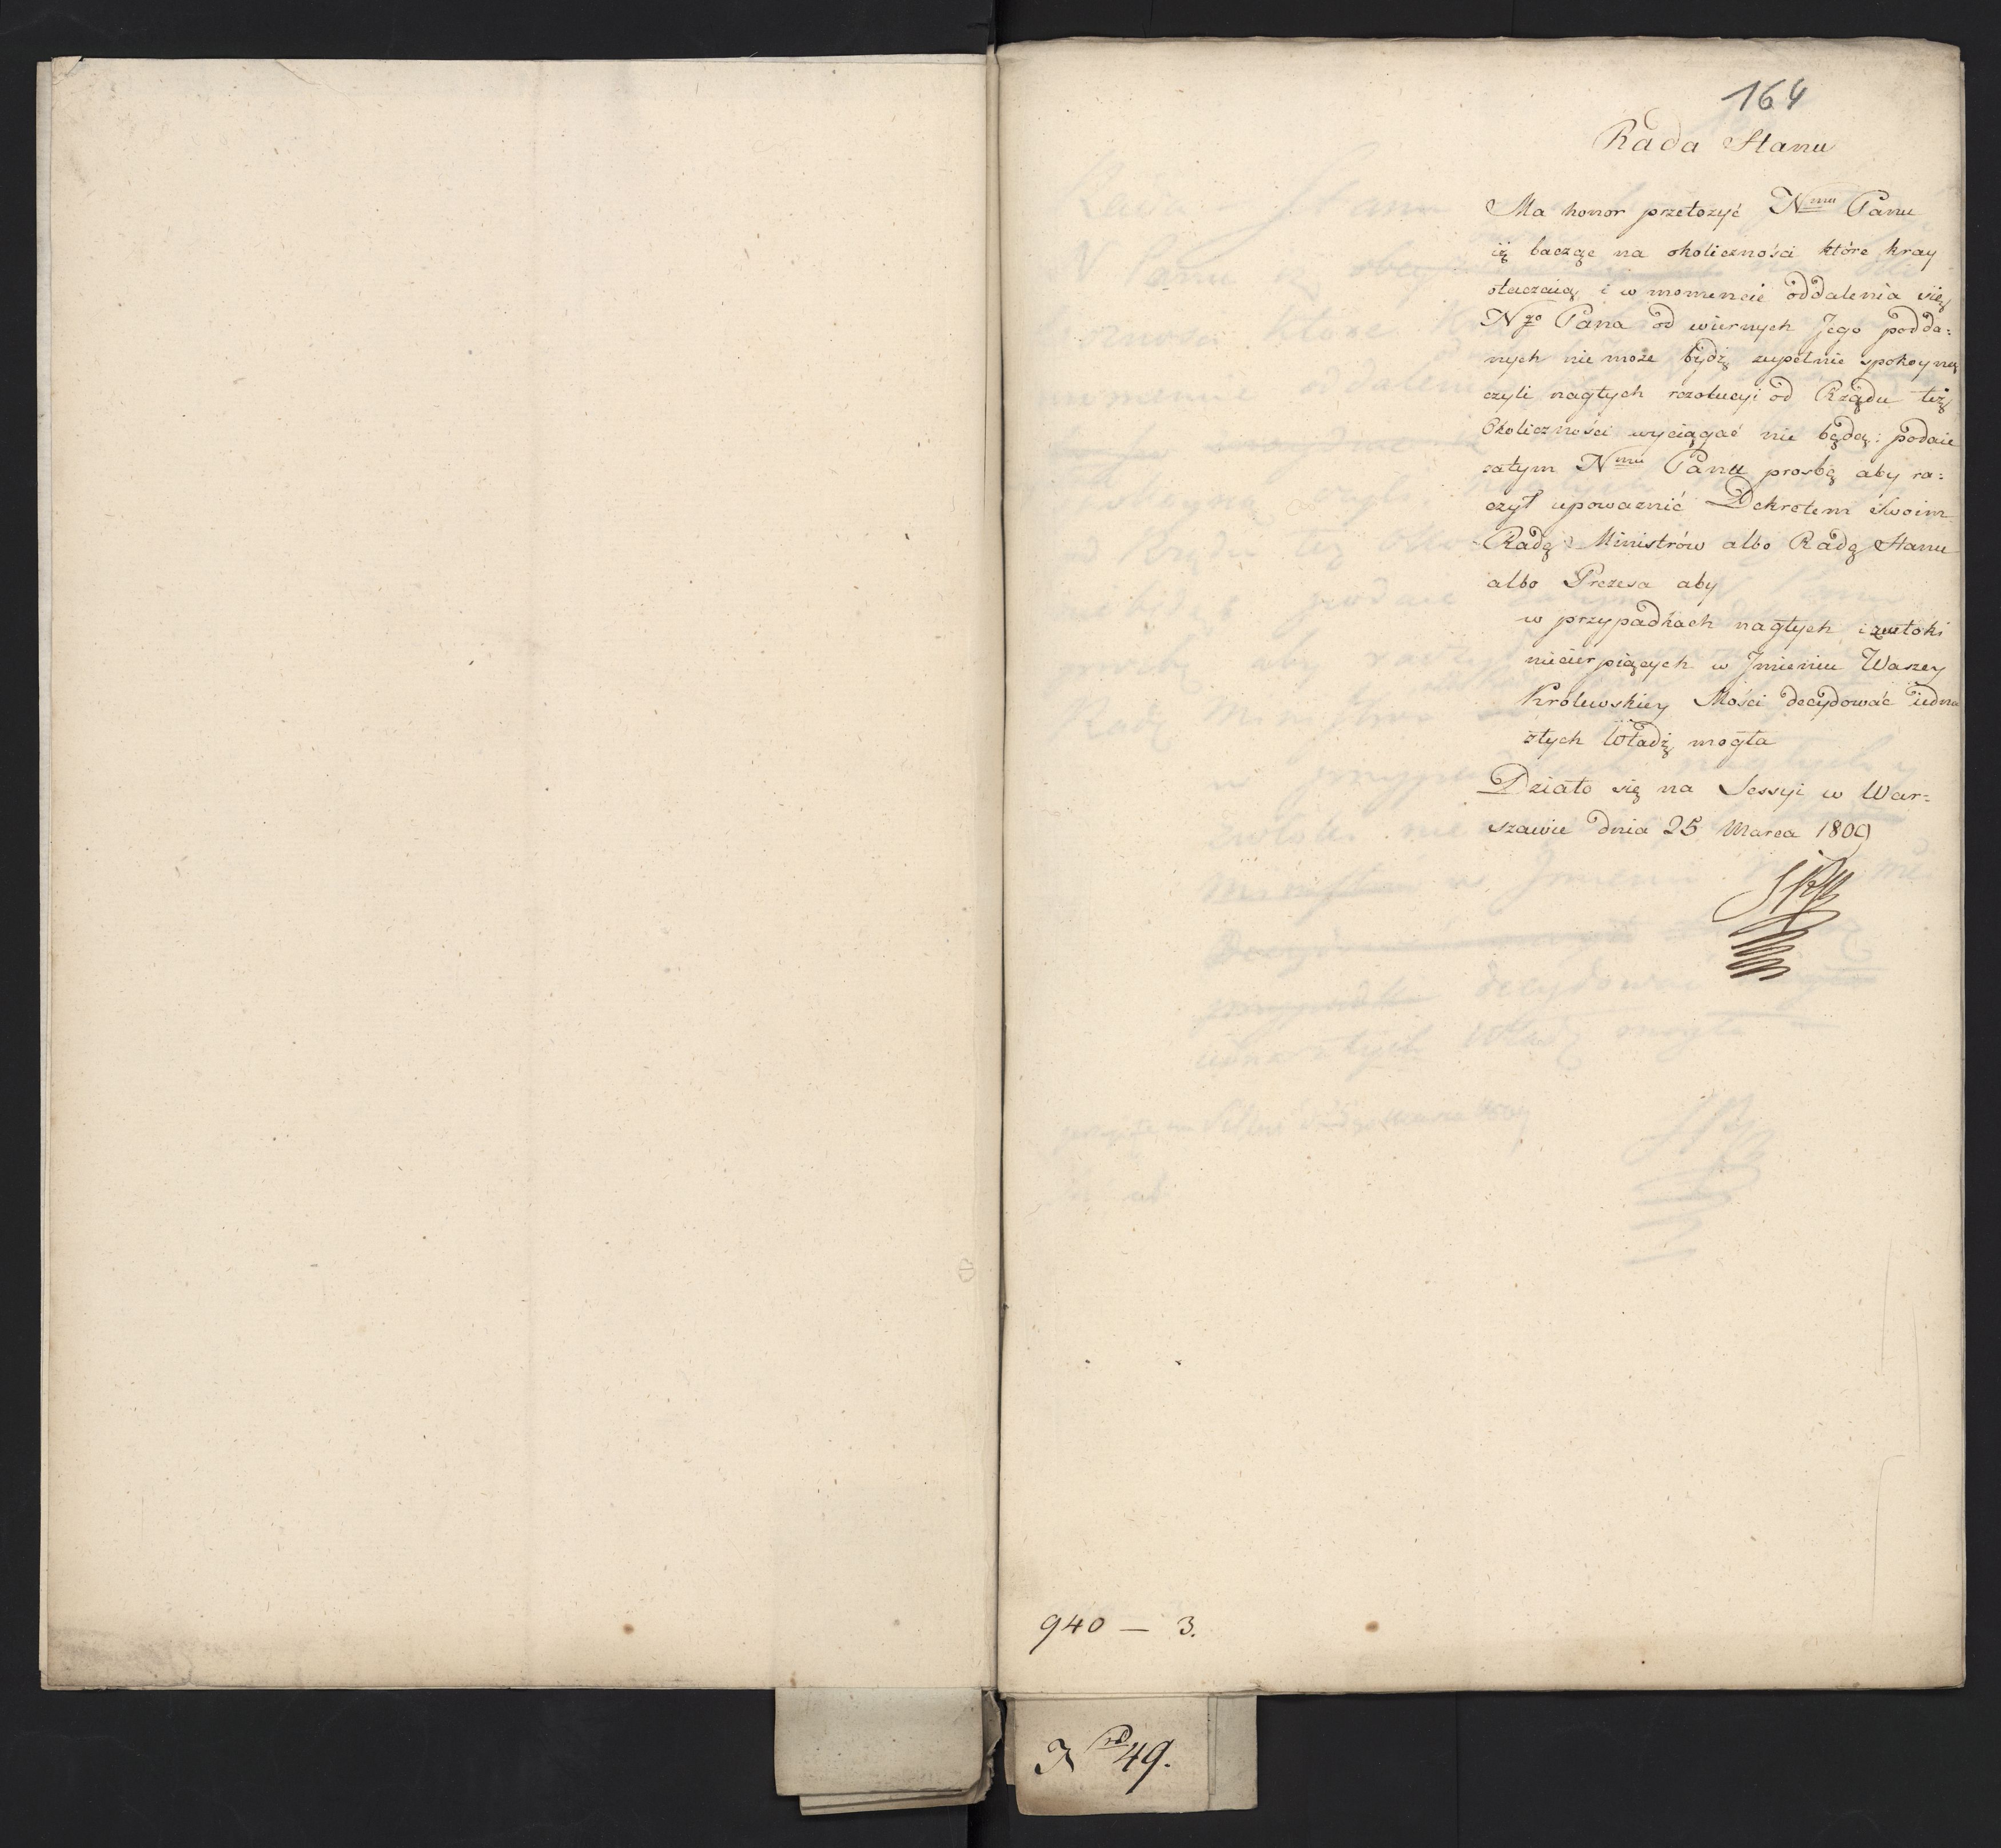 164
Rada Stanu
Ma honor przełozyć Nmu Panu
iż bacząc na okoliczności które kray
otaczaią i w momencie oddalenia się
Ngo Pana od wiernych Jego podda=
nych nie moze bydź zupełnie spokoyną
czyli nagłych rezolucyi od Rządu też
Okoliczności wyciągać nie będą: podaie
zatym Nmu Panu prosbę aby ra=
czył upowaznić Dekretem Swoim
Radę Ministrów albo Radę Stanu
albo Prezesa aby
w przypadkach nagłych i zwłoki
niecierpiących w Jmieniu Waszey
Królewskiey Mości decydować iedna
ztych Władz mogła
Działo się na Sessyi w War=
szawie dnia 25 Marca 1809
940 — 3.
N ro 49.